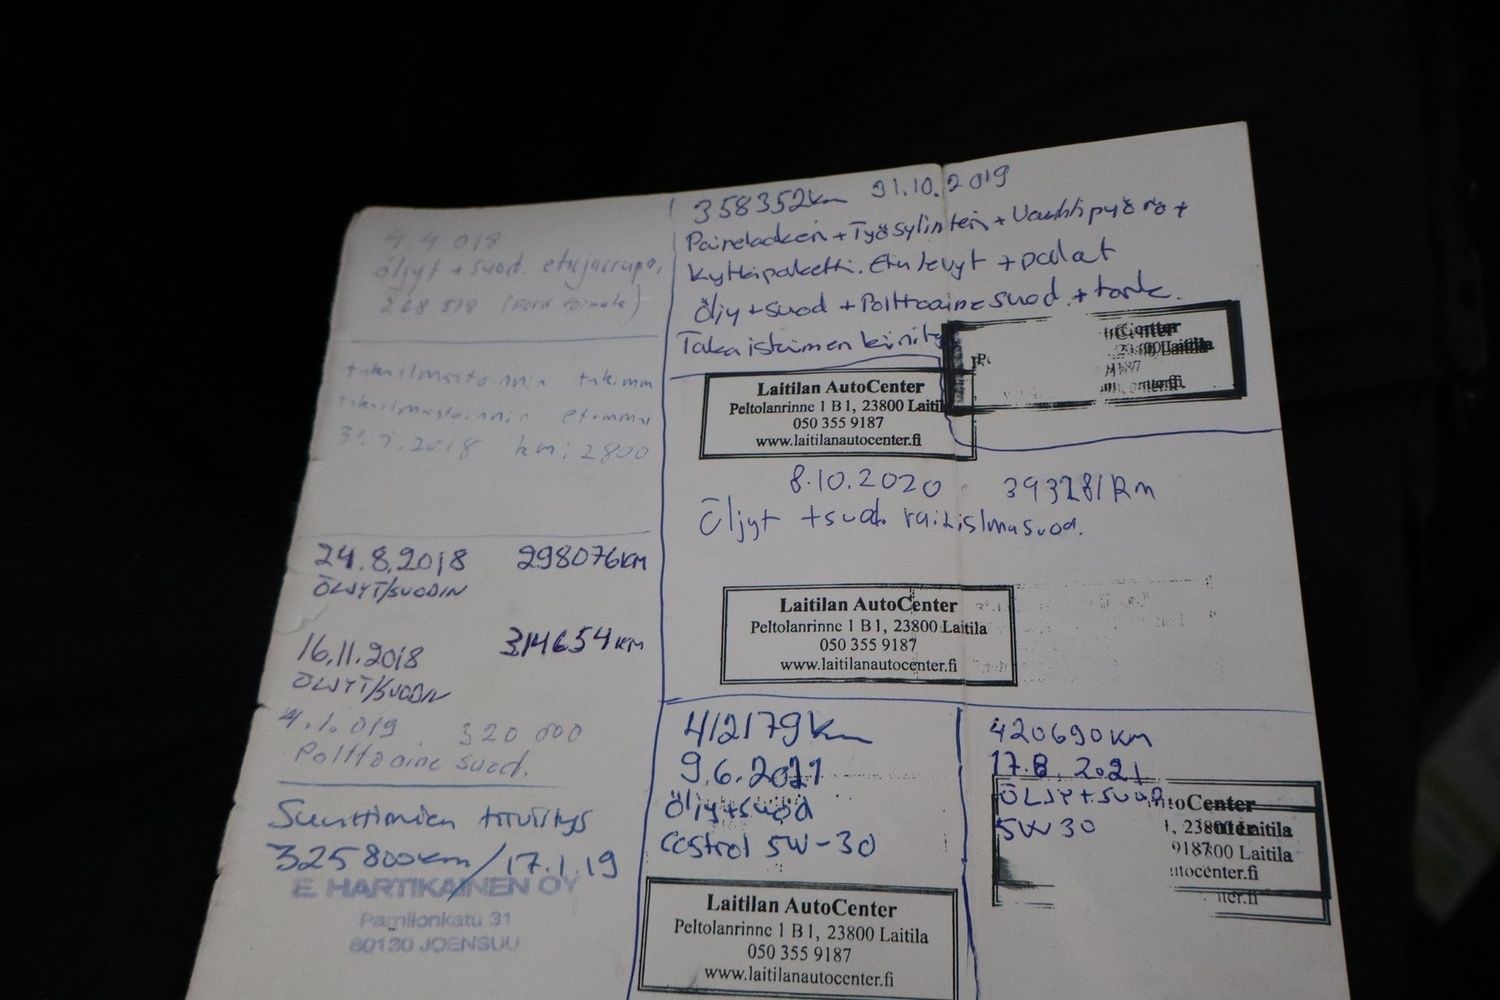 4.4.018
öljyt + suod. etujarrupa,
268 518 (Ford Formula)
takailmastoinnin
takailmastoinnin
2018 km: 2800
24.8.2018 298076KM
ÖLJYT/SUODIN
16.11.2018 314654KM
ÖLJYT/SUODIN
4.1.019 320 000
Polttoaine suod.
Suuttimien tiivistys
325800km/17.1.19
E. HARTIKAINEN OY
Pamilonkatu 31
80130 JOENSUU
358352km 31.10.2019
Painelaakeri + Työsylinteri + Vauhtipyörä +
Kytkinpaketti. Etu levyt + palat
Öljy + suod + Polttoaine suod. + tark.
Takaiskarimen kiinity
Laitilan AutoCenter
Peltolanrinne 1 B 1, 23800 Laitil
050 355 9187
www.laitilanautocenter.fi
Center
Laitila
8.10.2020 393281km
Öljyt + suod. raitisilmasuod.
Laitilan AutoCenter
Peltolanrinne 1 B 1, 23800 Laitila
050 355 9187
www.laitilanautocenter.fi
412179km
9.6.2021
öljy+suod
Castrol 5W-30
Laitilan AutoCenter
Peltolanrinne 1 B 1, 23800 Laitila
050 355 9187
www.laitilanautocenter.fi
420690KM
17.8.2021
ÖLJY+SUOD
5W30
toCenter
1, 23800 Laitila
9187
Laitila
utocenter.fi
ter.fi